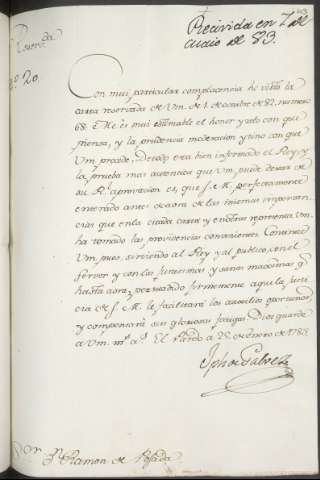 Recivida en 7 de
Junio de 83.
Reservda
N.º 20.
Con mui particular complacencia he visto la
carta reservada de Vm. de 1. de octubre de 82. numero
68. Me es mui estimable el honor y zelo con que
piensa, y la prudencia moderacion y tino con que
Vm. procede. Desde esta bien informado el Rey, y
la prueba mas autentica que Vm. puede desear de
su R.l aprovacion es, que S. M. perfectamente
enterado antes de aora de las mismas importan-
cias que en la citada carta y en otras representa Vm.
ha tomado las providencias convenientes. Continúe
Vm. pues, sirviendo al Rey y al público, con el
fervor y con las juiciosas y sanas maximas q.e
hasta aora, persuadido firmemente a que la justi-
cia de S. M. le facilitará los auxilios oportunos,
y compensará sus gloriosas fatigas. Dios guarde
a Vm. m.s a.s El Pardo a 25 de enero de 1783.
Jph de Galvez
S.r D.n Ramon de Posada